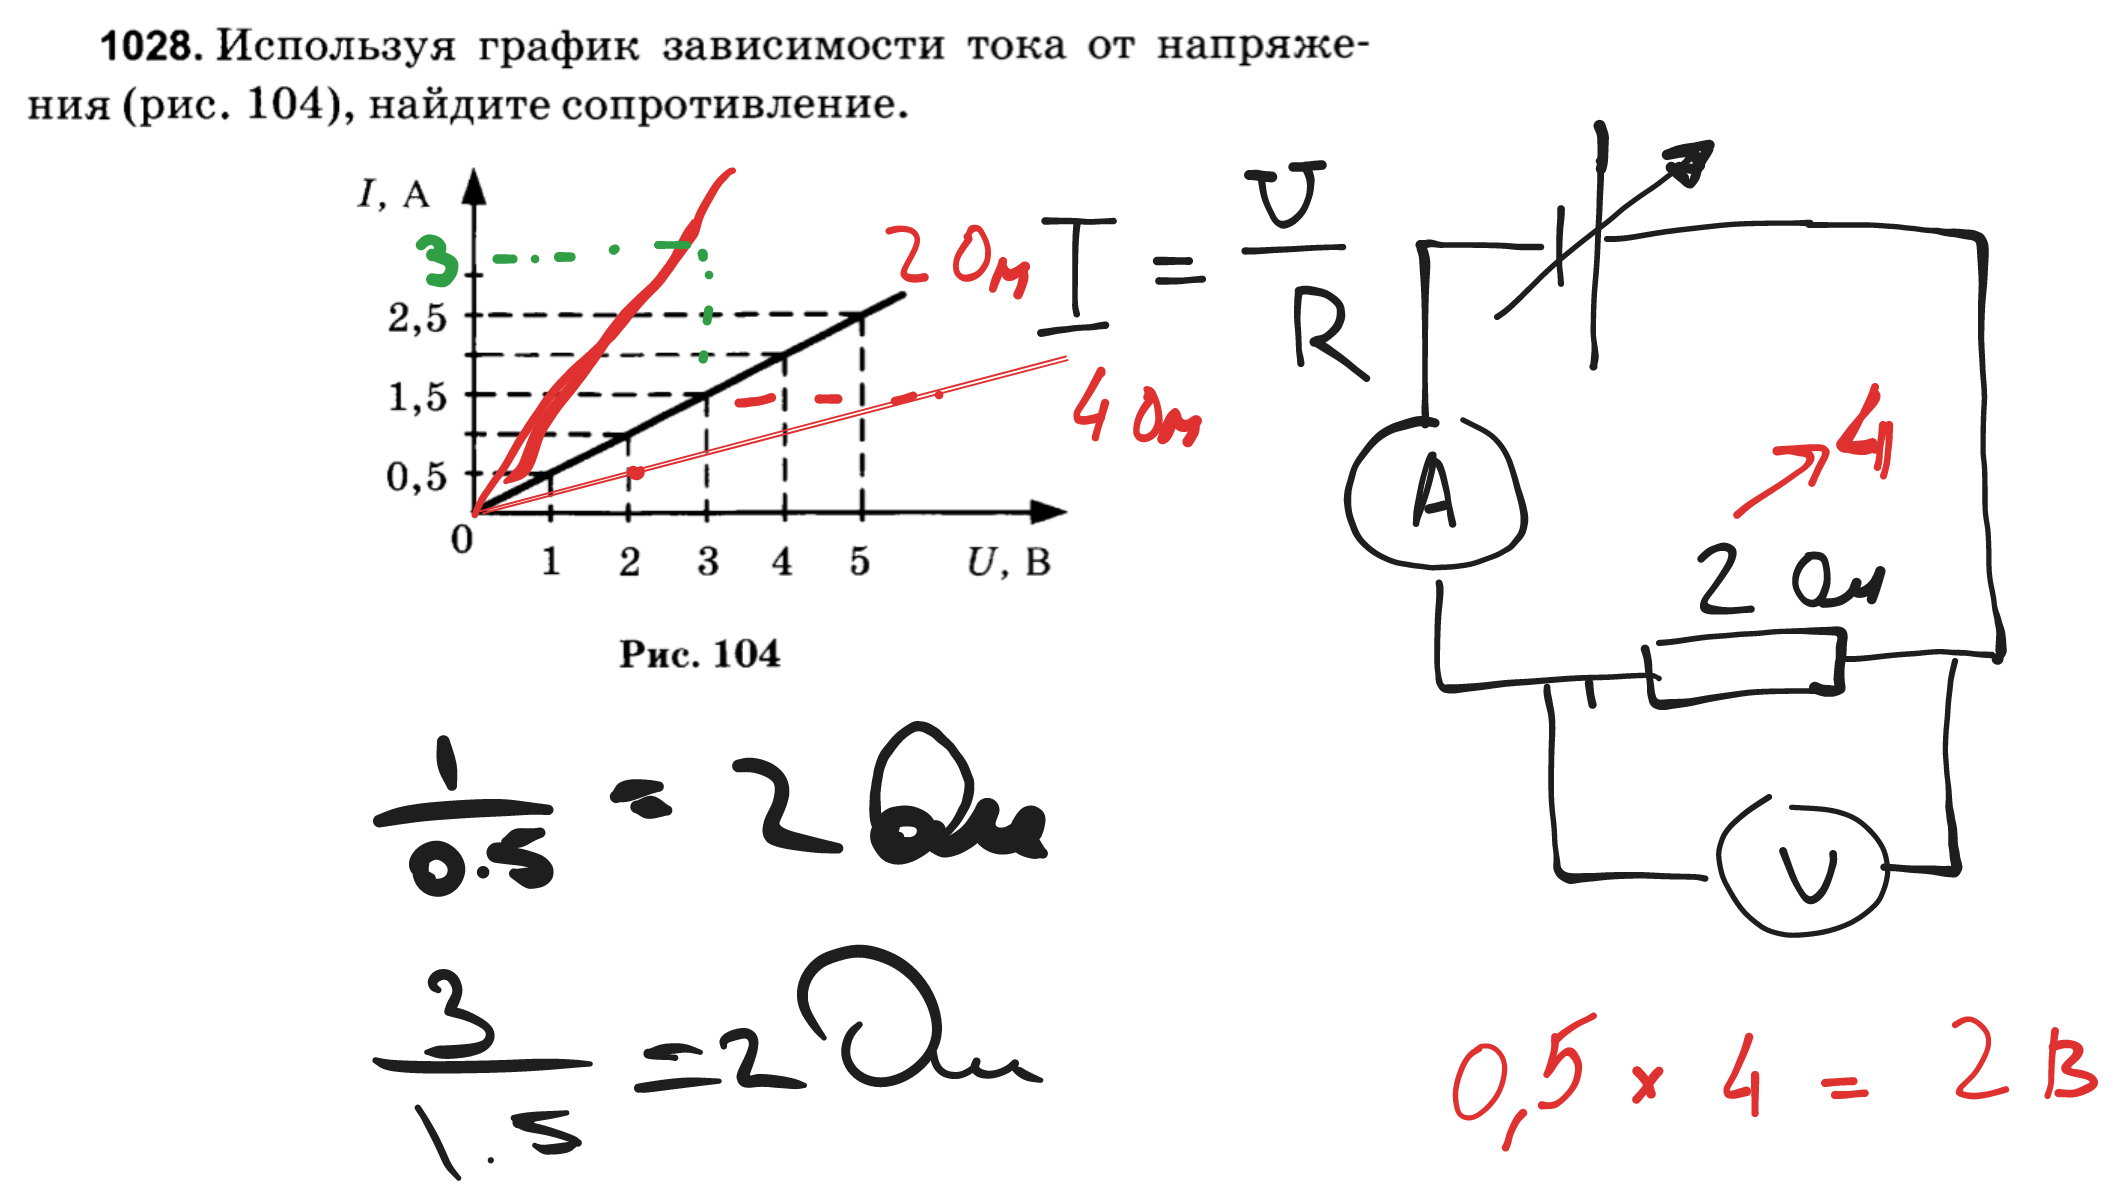 1028. Используя график зависимости тока от напряже-
ния (рис. 104), найдите сопротивление.
I, А
3
2,5
1,5
0,5
0
1 2 3 4 5 U, В
2 Ом
4 Ом
Рис. 104
I = U / R
A
4
2 Ом
V
1 / 0.5 = 2 Ом
3 / 1.5 = 2 Ом
0,5 × 4 = 2 В